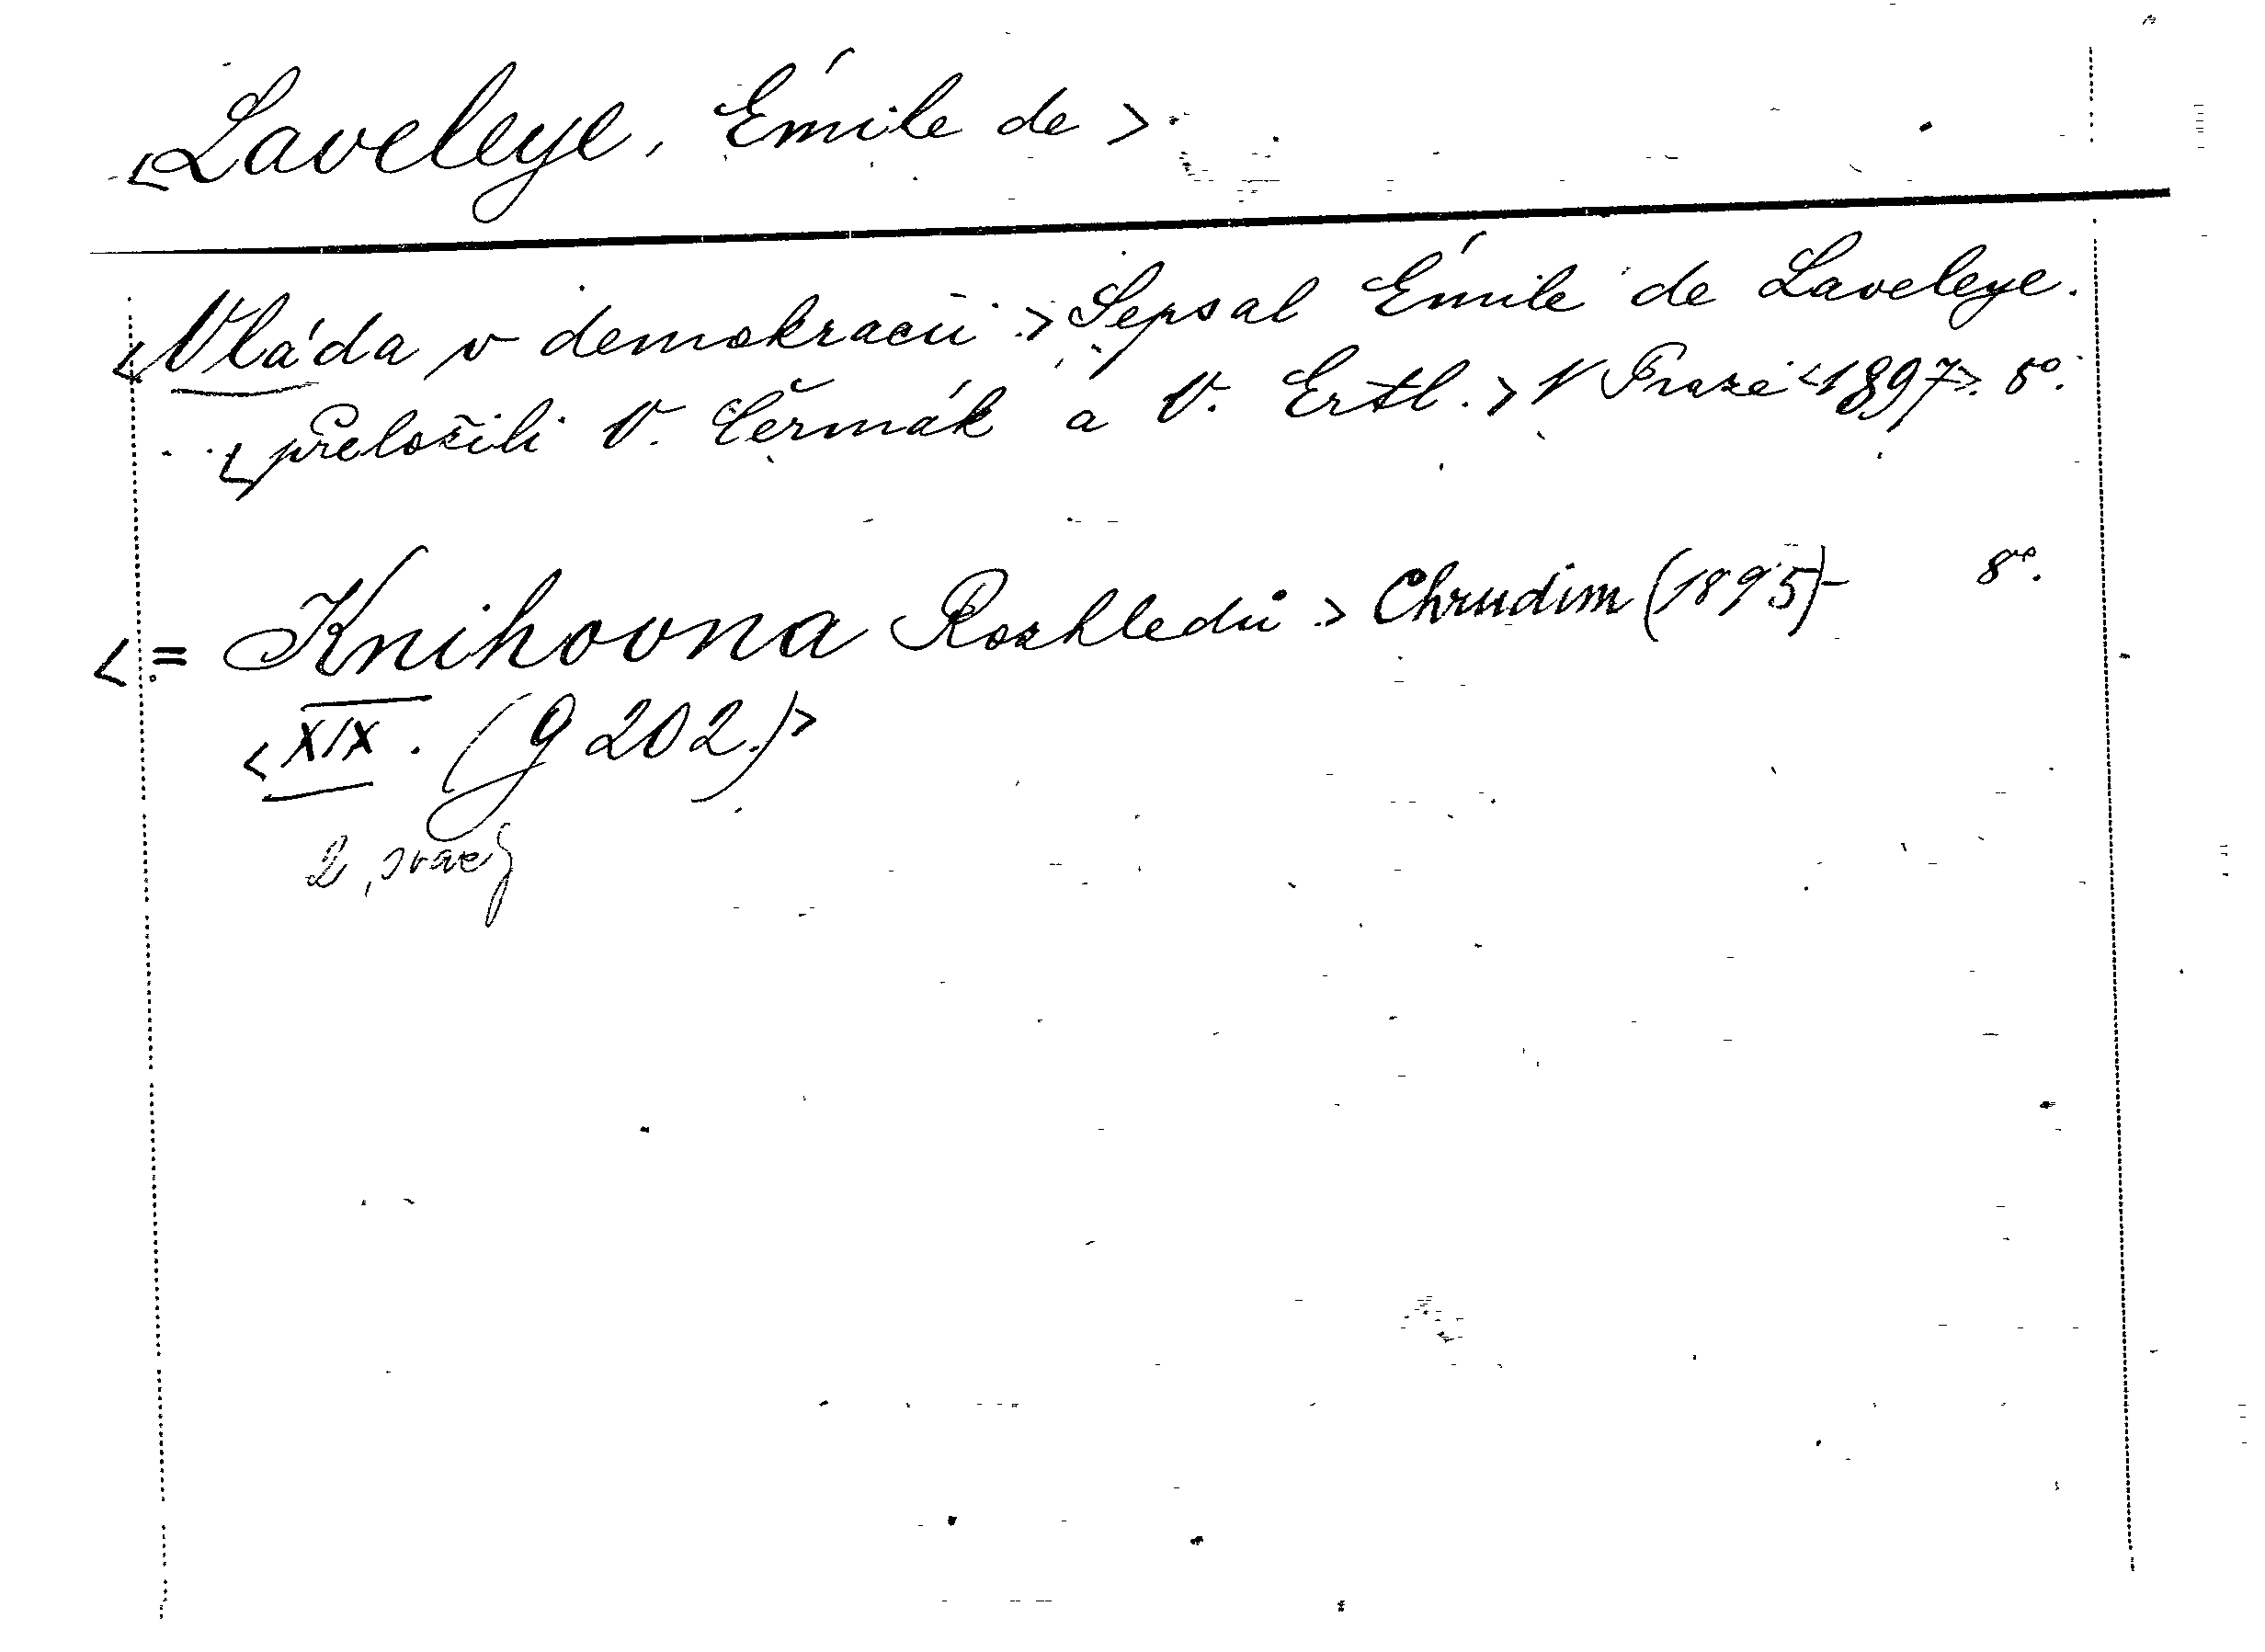 <Laveleye, Émile de>
<Vláda v demokracii.> Sepsal Émile de Laveleye.
<přeložili V. Čermák a V. Ertl.> V Praze <1897>. 8°.
<= Knihovna Rozhledů.> Chrudim (1895)- 8°.
<XIX. (g 202.)>
2